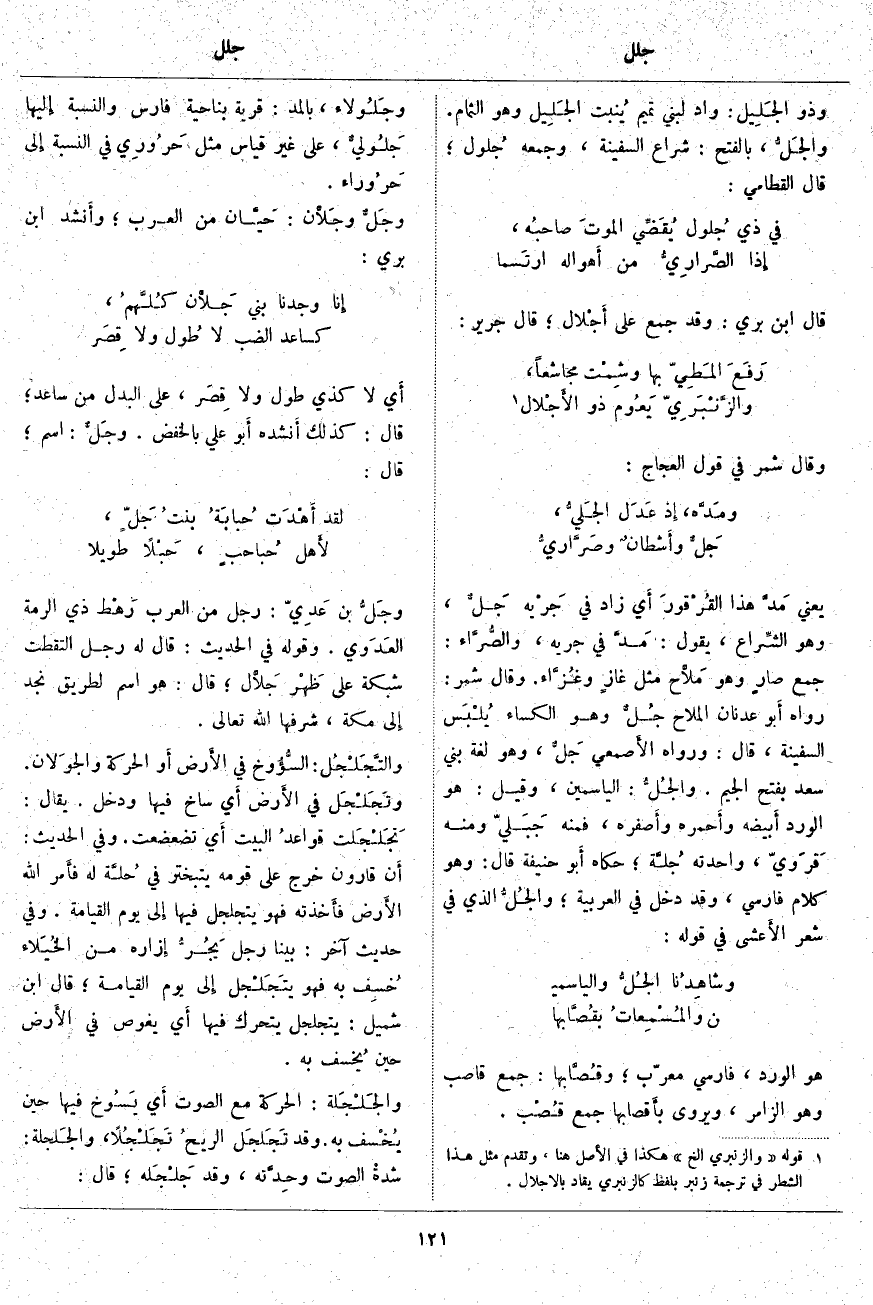 جلل
جلل
وذو الجَلِيل: واد لبني تميم يُنبت الجَلِيل وهو الثمام.
والجَلُّ، بالفتح: شراع السفينة، وجمعه جُلول؛
قال القطامي:
في ذي جُلول يُقَضِّي الموتَ صاحبُه،
إذا الصَّراريُّ من أهواله ارتَسما
قال ابن بري: وقد جمع على أَجْلال؛ قال جرير:
رَفَعَ المَطِيّ بها وشِمْت مجاشعاً،
والزَّنْبَرِيّ يَعُوم ذو الأَجْلال١
وقال شمر في قول العجاج:
ومَدَّه، إذ عَدَل الجَلِيُّ،
جَلٌّ وأَشْطانٌ وصَرَّاريُّ
يعني مَدَّ هذا القُرْقورَ أي زاد في جَرْيه جَلٌّ،
وهو الشِّراع، يقول: مَدَّ في جريه، والصُّرَّاء:
جمع صارٍ وهو مَلاَّح مثل غازٍ وغُزَّاء. وقال شمر:
رواه أبو عدنان الملاح جُلٌّ وهو الكساء يُلْبَس
السفينة، قال: ورواه الأصمعي جَلٌّ، وهو لغة بني
سعد بفتح الجيم. والجُلُّ: الياسمين، وقيل: هو
الورد أبيضه وأحمره وأصفره، فمنه جَبَليّ ومنه
قَرَويّ، واحدته جُلَّة؛ حكاه أبو حنيفة قال: وهو
كلام فارسي، وقد دخل في العربية؛ والجُلُّ الذي في
شعر الأعشى في قوله:
وشاهِدُنا الجُلُّ والياسميـ
ن والمُسْمِعاتُ بقُصَّابها
هو الورد، فارسي معرّب؛ وقُصَّابها: جمع قاصب
وهو الزامر، ويروى بأقصابها جمع قُصْب.
١ قوله «والزنبري الخ» هكذا في الأصل هنا، وتقدم مثل هذا
الشطر في ترجمة زنبر بلفظ كالزنبري يقاد بالاجلال.
وجَلُولاء، بالمد: قرية بناحية فارس والنسبة إليها
جَلُوليٌّ، على غير قياس مثل حَرُوري في النسبة إلى
حَرُوراء.
وجَلٌّ وجَلاَّن: حَيَّان من العرب؛ وأنشد ابن
بري:
إنا وجدنا بني جَلاَّن كُلَّهمُ،
كساعد الضب لا طُول ولا قِصَر
أي لا كذي طول ولا قِصَر، على البدل من ساعد؛
قال: كذلك أنشده أبو علي بالخفض. وجَلٌّ: اسم؛
قال:
لقد أَهْدَت حُبابَةُ بنتُ جَلٍّ،
لأَهل حُباحبٍ، حَبْلًا طويلا
وجَلُّ بن عَدِيّ: رجل من العرب رَهْط ذي الرمة
العَدَوي. وقوله في الحديث: قال له رجل التقطت
شبكة على ظَهْر جَلاَّل؛ قال: هو اسم لطريق نجد
إلى مكة، شرفها الله تعالى.
والتَّجَلْجُل: السُّؤُوخ في الأَرض أو الحركة والجوَلان.
وتَجَلْجَل في الأَرض أي ساخ فيها ودخل. يقال:
تَجَلْجَلت قواعدُ البيت أي تضعضعت. وفي الحديث:
أن قارون خرج على قومه يتبختر في حُلَّة له فأمر الله
الأَرض فأخذته فهو يتجلجل فيها إلى يوم القيامة. وفي
حديث آخر: بينا رجل يَجُرُّ إزاره من الخُيَلاء
خُسِف به فهو يتَجَلْجل إلى يوم القيامة؛ قال ابن
شميل: يتجلجل يتحرك فيها أي يغوص في الأَرض
حين يُخسف به.
والجَلْجَلة: الحركة مع الصوت أي يَسُوخ فيها حين
يُخْسف به. وقد تَجَلجَل الريحُ تَجَلْجُلًا، والجَلجلة:
شدةُ الصوت وحِدَّته، وقد جَلْجَله؛ قال:
١٢١